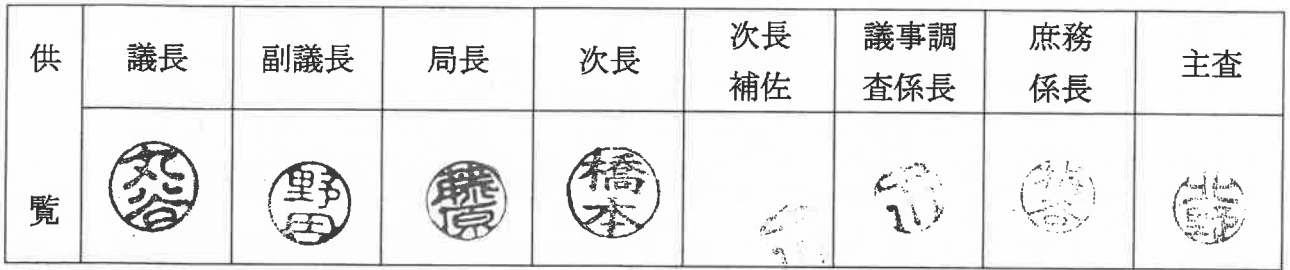 供覧
議長
副議長
局長
次長
次長
補佐
議事調
査係長
庶務
係長
主査
丸谷
野田
藤原
橋本
北野